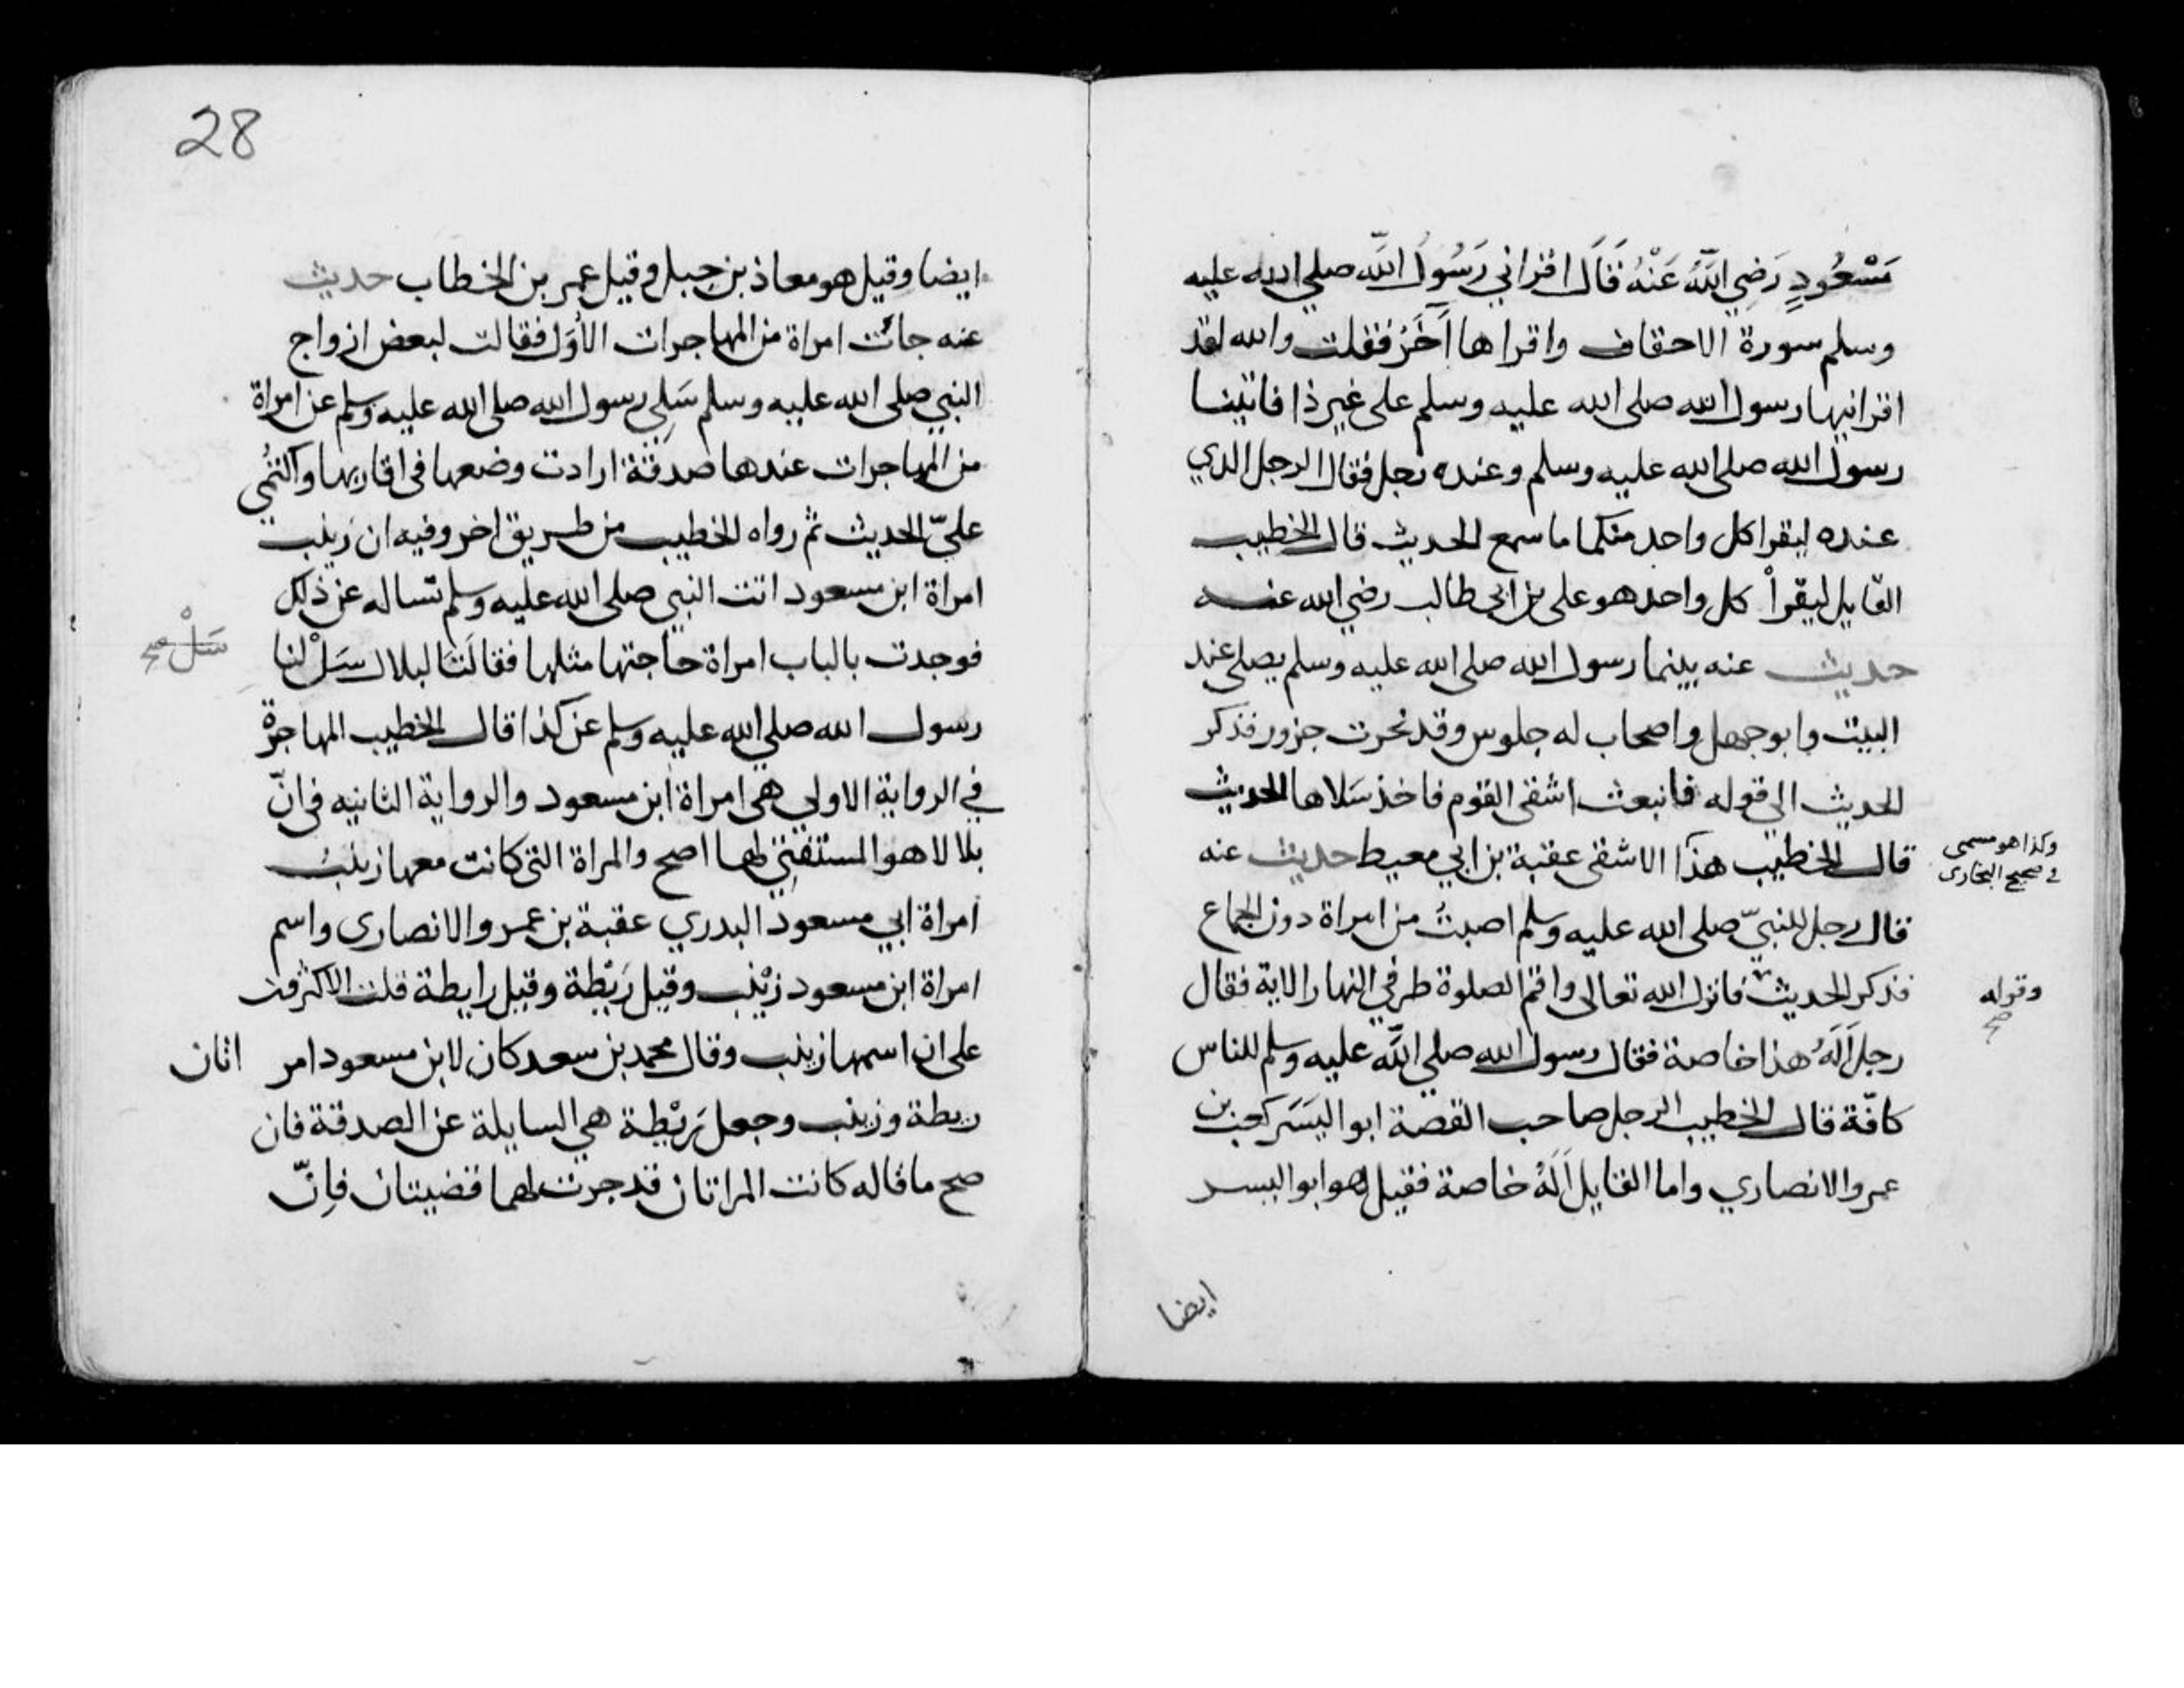 مَسْعُودٍ رَضِيَ اللَّهُ عَنْهُ قَالَ اقراني رَسُولُ اللَّه صلي الله عليه
وسلم سورة الاحقاف واقراها آخَرُ فقلت والله لقد
اقرانيها رسول الله صلى الله عليه وسلم على غير ذا فاتينا
رسول الله صلى الله عليه وسلم وعنده رجل فقال الرجل الدي
عنده ليقرا كل واحد منكما ما سمع الحديث قال الخطيب
القايل ليقرأ كل واحد هو على بن ابي طالب رضي الله عنه
حديث عنه بينما رسول الله صلى الله عليه وسلم يصلى عند
البيت وابو جهل واصحاب له جلوس وقد نحرت جزور فذكر
الحديث الى قوله فانبعث اشقى القوم فاخذ سَلاها الحديث
قال الخطيب هذا الاشقى عقبة بن ابي معيط حديث عنه
وكذا هو مسمى
في صحيح البخارى
قال رجل للنبيّ صلى الله عليه وسلم اصبتُ من امراة دون الجماع
فذكر الحديث فانزل الله تعالى واقم الصلوة طرفي النهار الاية فقال
وقوله
صح
رجل أَلَهُ هذا خاصة فقال رسول الله صلى اللَّه عليه وسلم للناس
كافّة قال الخطيب الرجل صاحب القصة ابو اليَسَر كعب بن
عمرو الانصاري واما القايل أَلَهُ خاصة فقيل هو ابو اليسر
ايضا
28
ايضا وقيل هو معاذ بن جبل وقيل عمر بن الخطاب حديث
عنه جائت امراة من المهاجرات الأُوَل فقالت لبعض ازواج
النبي صلى الله عليه وسلم سَلِي رسول الله صلى الله عليه وسلم عن امراة
من المهاجرات عندها صدقة ارادت وضعها فى اقاربها واكتُمي
عليّ الحديث ثم رواه الخطيب من طريق اخر وفيه ان زينب
امراة ابن مسعود اتت النبي صلى الله عليه وسلم تساله عن ذلك
فوجدت بالباب امراة حاجتها مثلها فقالَتَا لبلال سَلْ لنا
سَلْ صح
رسول الله صلي الله عليه وسلم عن كذا قال الخطيب المهاجرة
في الرواية الاولى هى امراة ابن مسعود والرواية الثانيه فى انّ
بلالا هو المستفتِي لهما اصح والمراة التى كانت معها زينبُ
امراة ابي مسعود البدري عقبة بن عمرو الانصارى واسم
امراة ابن مسعود زيْنب وقيل رَيْطة وقيل رايطة قلت الاكثرون
على ان اسمها زينب وقال محمد بن سعد كان لابن مسعود امر اتان
ريطة وزينب وجعل رَيْطة هي السايلة عن الصدقة فان
صح ما قاله كانت المراتان قد جرت لهما قضيتان فاِنّ